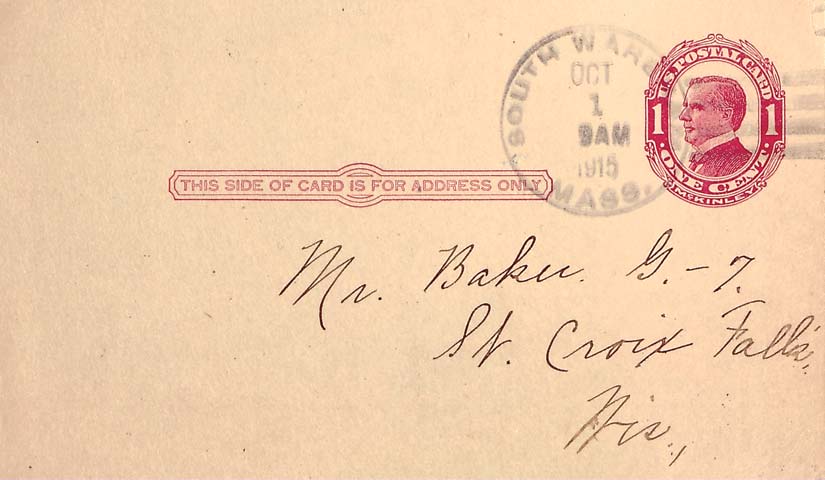 SOUTH WARE
OCT
1
9AM
1915
MASS.
U.S. POSTAL CARD
1 1
ONE CENT
McKINLEY
THIS SIDE OF CARD IS FOR ADDRESS ONLY
Mr. Baker. G.-7.
St. Croix Falls,
Wis.,